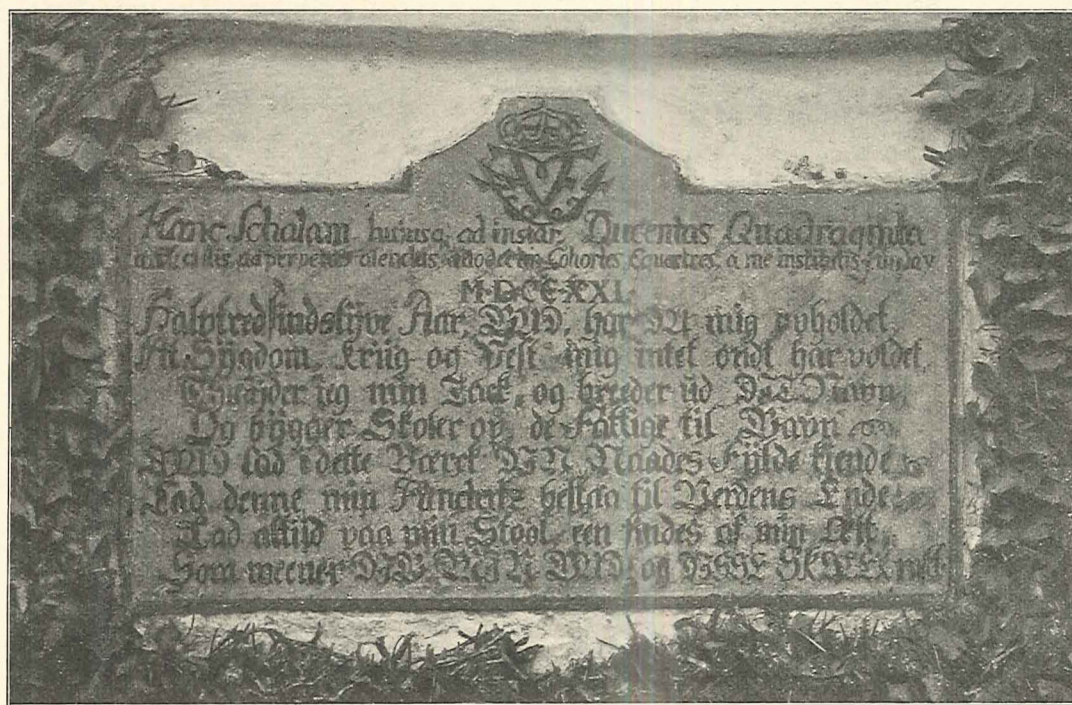 Hanc Scholam hujusq; ad instar Ducentas Quadraginta
Cohortes Equestres, a me institutis, fundavi
MDCCXXI.
Halvtredsindstyve Aar, GUD, har DU mig opholdet,
At Sygdom, Kriig og Pest mig intet ondt har voldet,
Thi yder jeg min Tack, og breeder ud DIT Navn,
Og bygger Skoler op, de Fattige til Gavn
GUD lad i dette Værck DIN Naades Fylde kiende
Lad denne min Fundatz bestaa til Verdens Ende
Lad altiid paa min Stool een findes af min Ætt,
Som meener DIG MIN GUD og DISSE SKOLER rett.